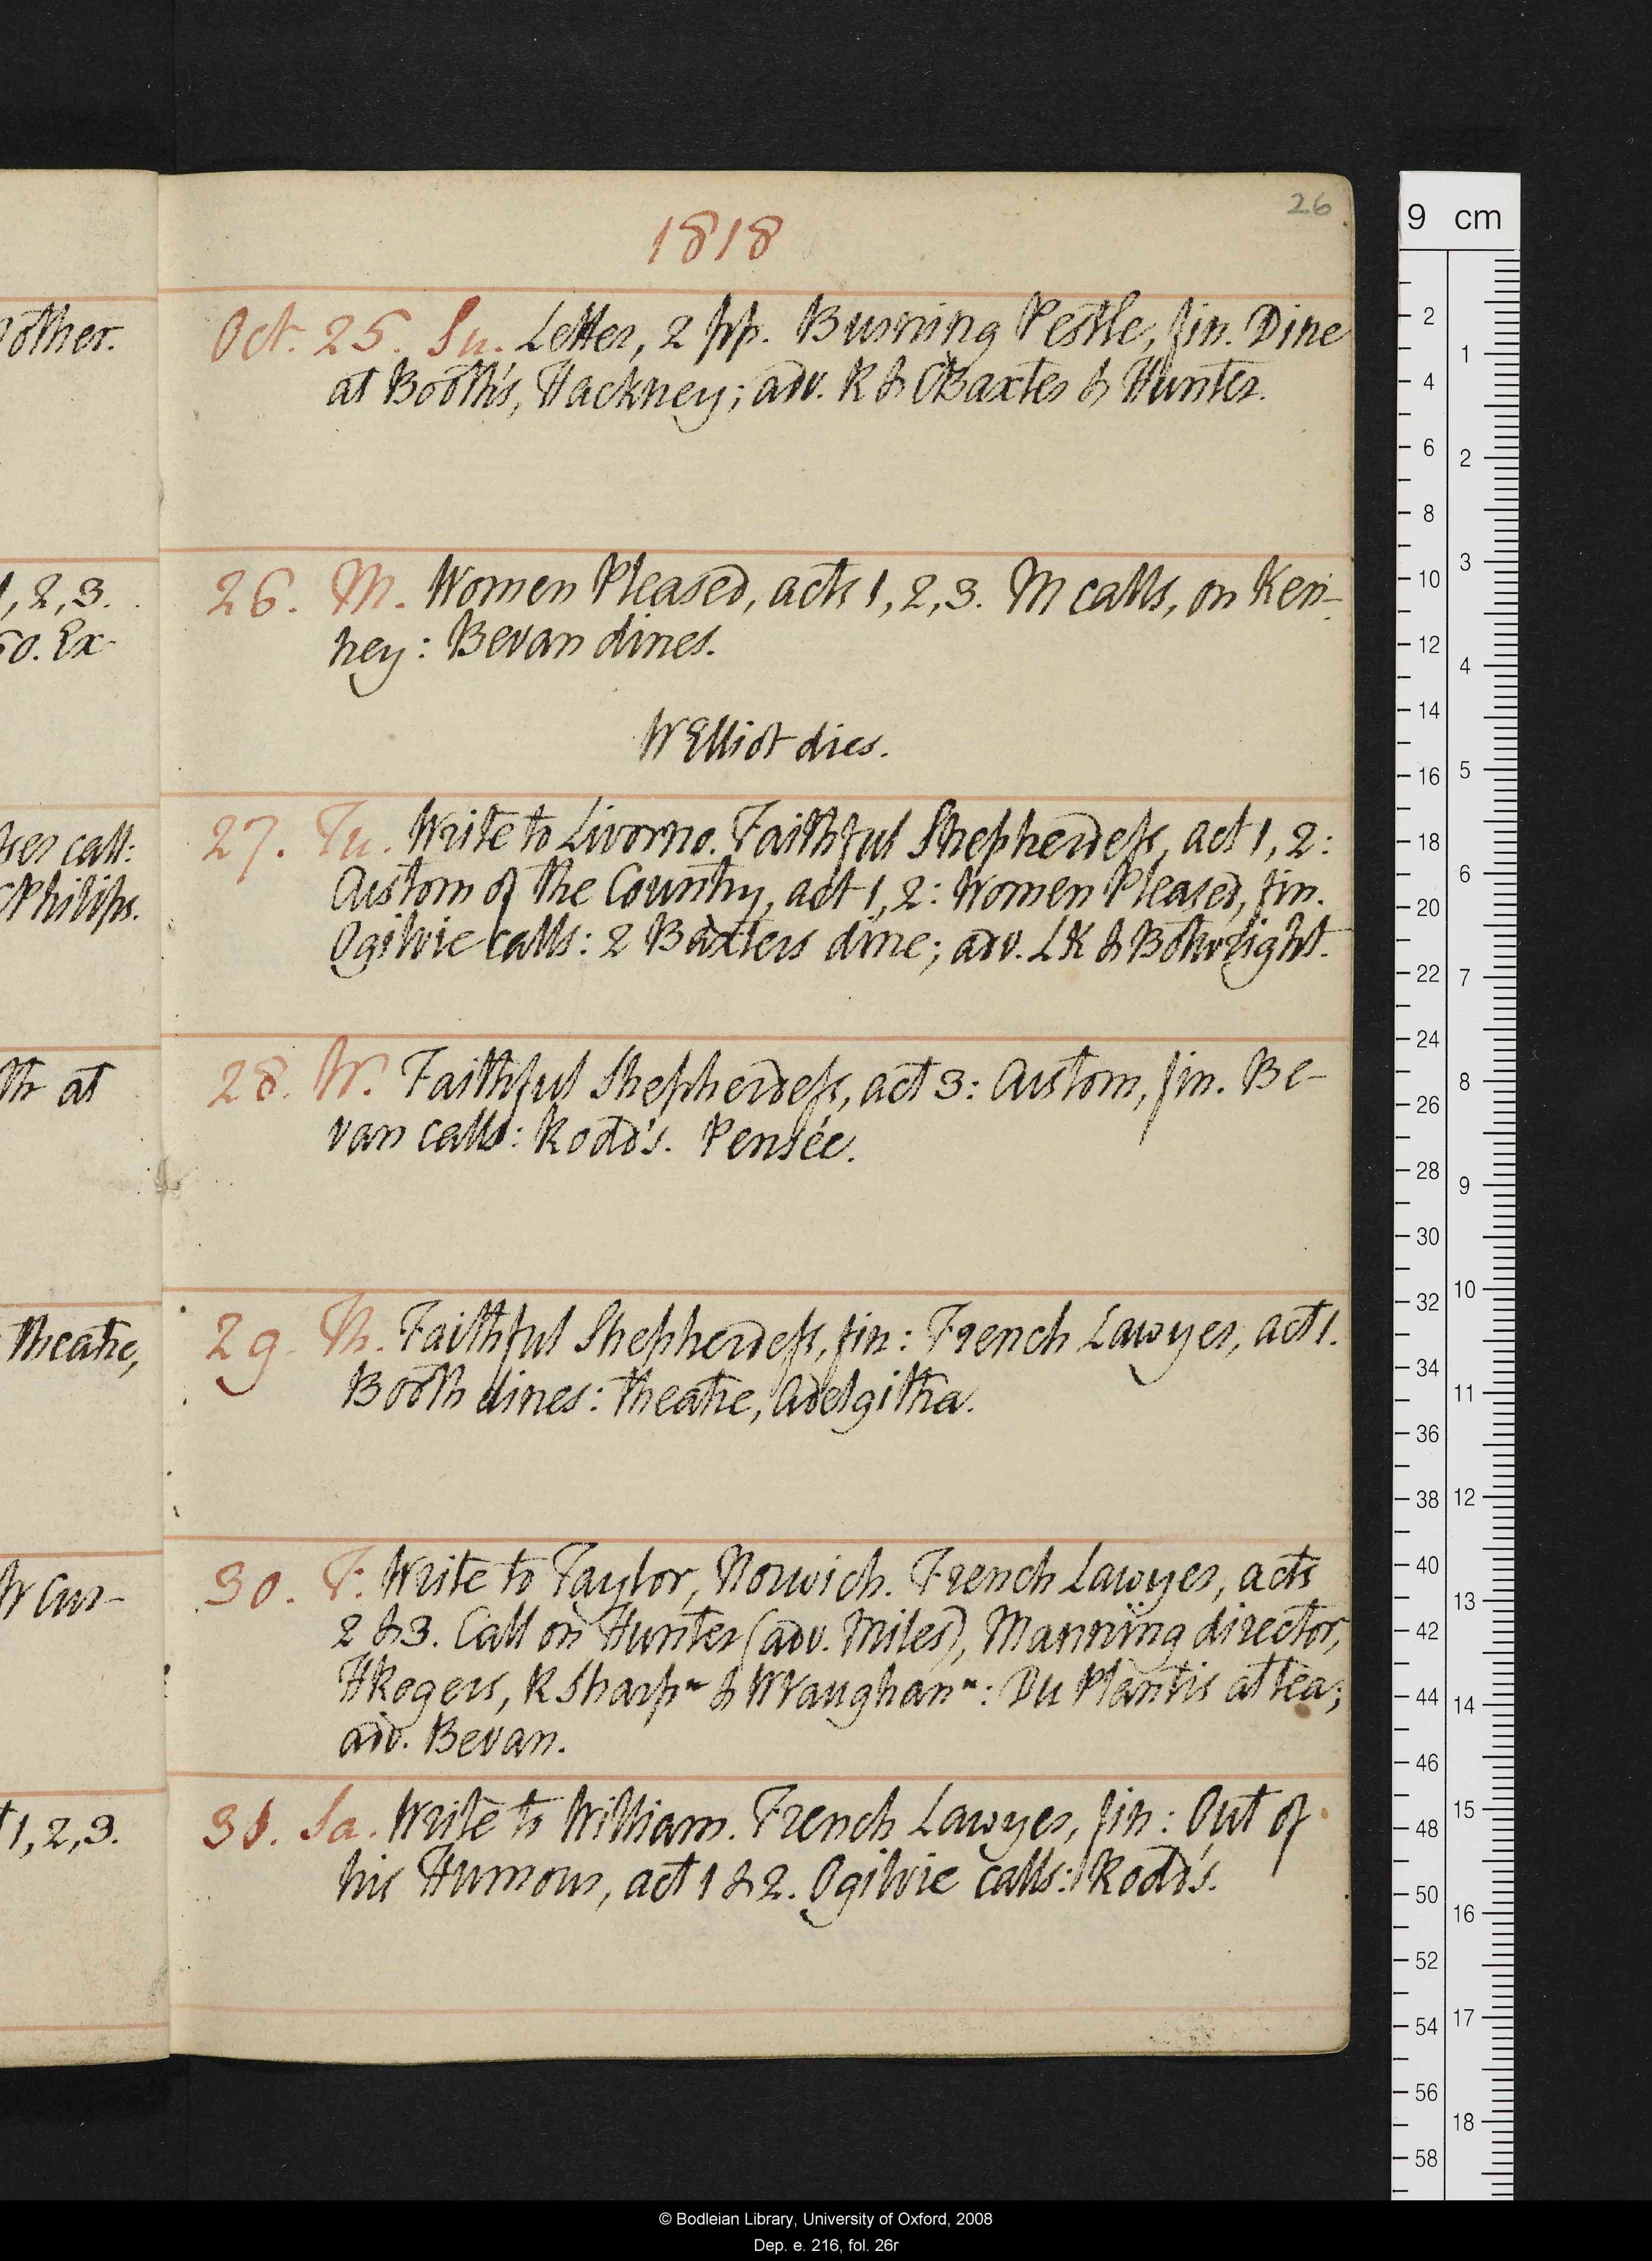 26
1818
Oct. 25. Su. Letter, 2 pp. Burning Pestle, fin. Dine
at Booth's, Hackney; adv. R & C Baxter & Hunter.
26. M. Women Pleased, acts 1, 2, 3. M calls, on Ken-
ney: Bevan dines.
W Elliot dies.
27. Tu. Write to Livorno. Faithful Shepherdess, act 1, 2:
Custom of the Country, act 1, 2: Women Pleased, fin.
Ogilvie calls: 2 Baxters dine; adv. LK & Botwright.
28. W. Faithful Shepherdess, act 3: Custom, fin. Be-
van calls: Rodd's. Pensée.
29. Th. Faithful Shepherdess, fin: French Lawyer, act 1.
Booth dines: theatre, Adelgitha.
30. F. Write to Taylor, Norwich. French Lawyer, acts
2 & 3. Call on Hunter (adv. Miles), Manning director,
H Rogers, R Sharp n & W Vaughan n: Du Plantis at tea;
adv. Bevan.
31. Sa. Write to William. French Lawyer, fin: Out of
his Humour, act 1 & 2. Ogilvie calls: Rodd's.
other.
1, 2, 3.
50. Ex-
call:
Philips.
th at
Theatre,
W Cur-
1, 2, 3.
9 cm
2 4 6 8 10 12 14 16 18 20 22 24 26 28 30 32 34 36 38 40 42 44 46 48 50 52 54 56 58
1 2 3 4 5 6 7 8 9 10 11 12 13 14 15 16 17 18
© Bodleian Library, University of Oxford, 2008
Dep. e. 216, fol. 26r